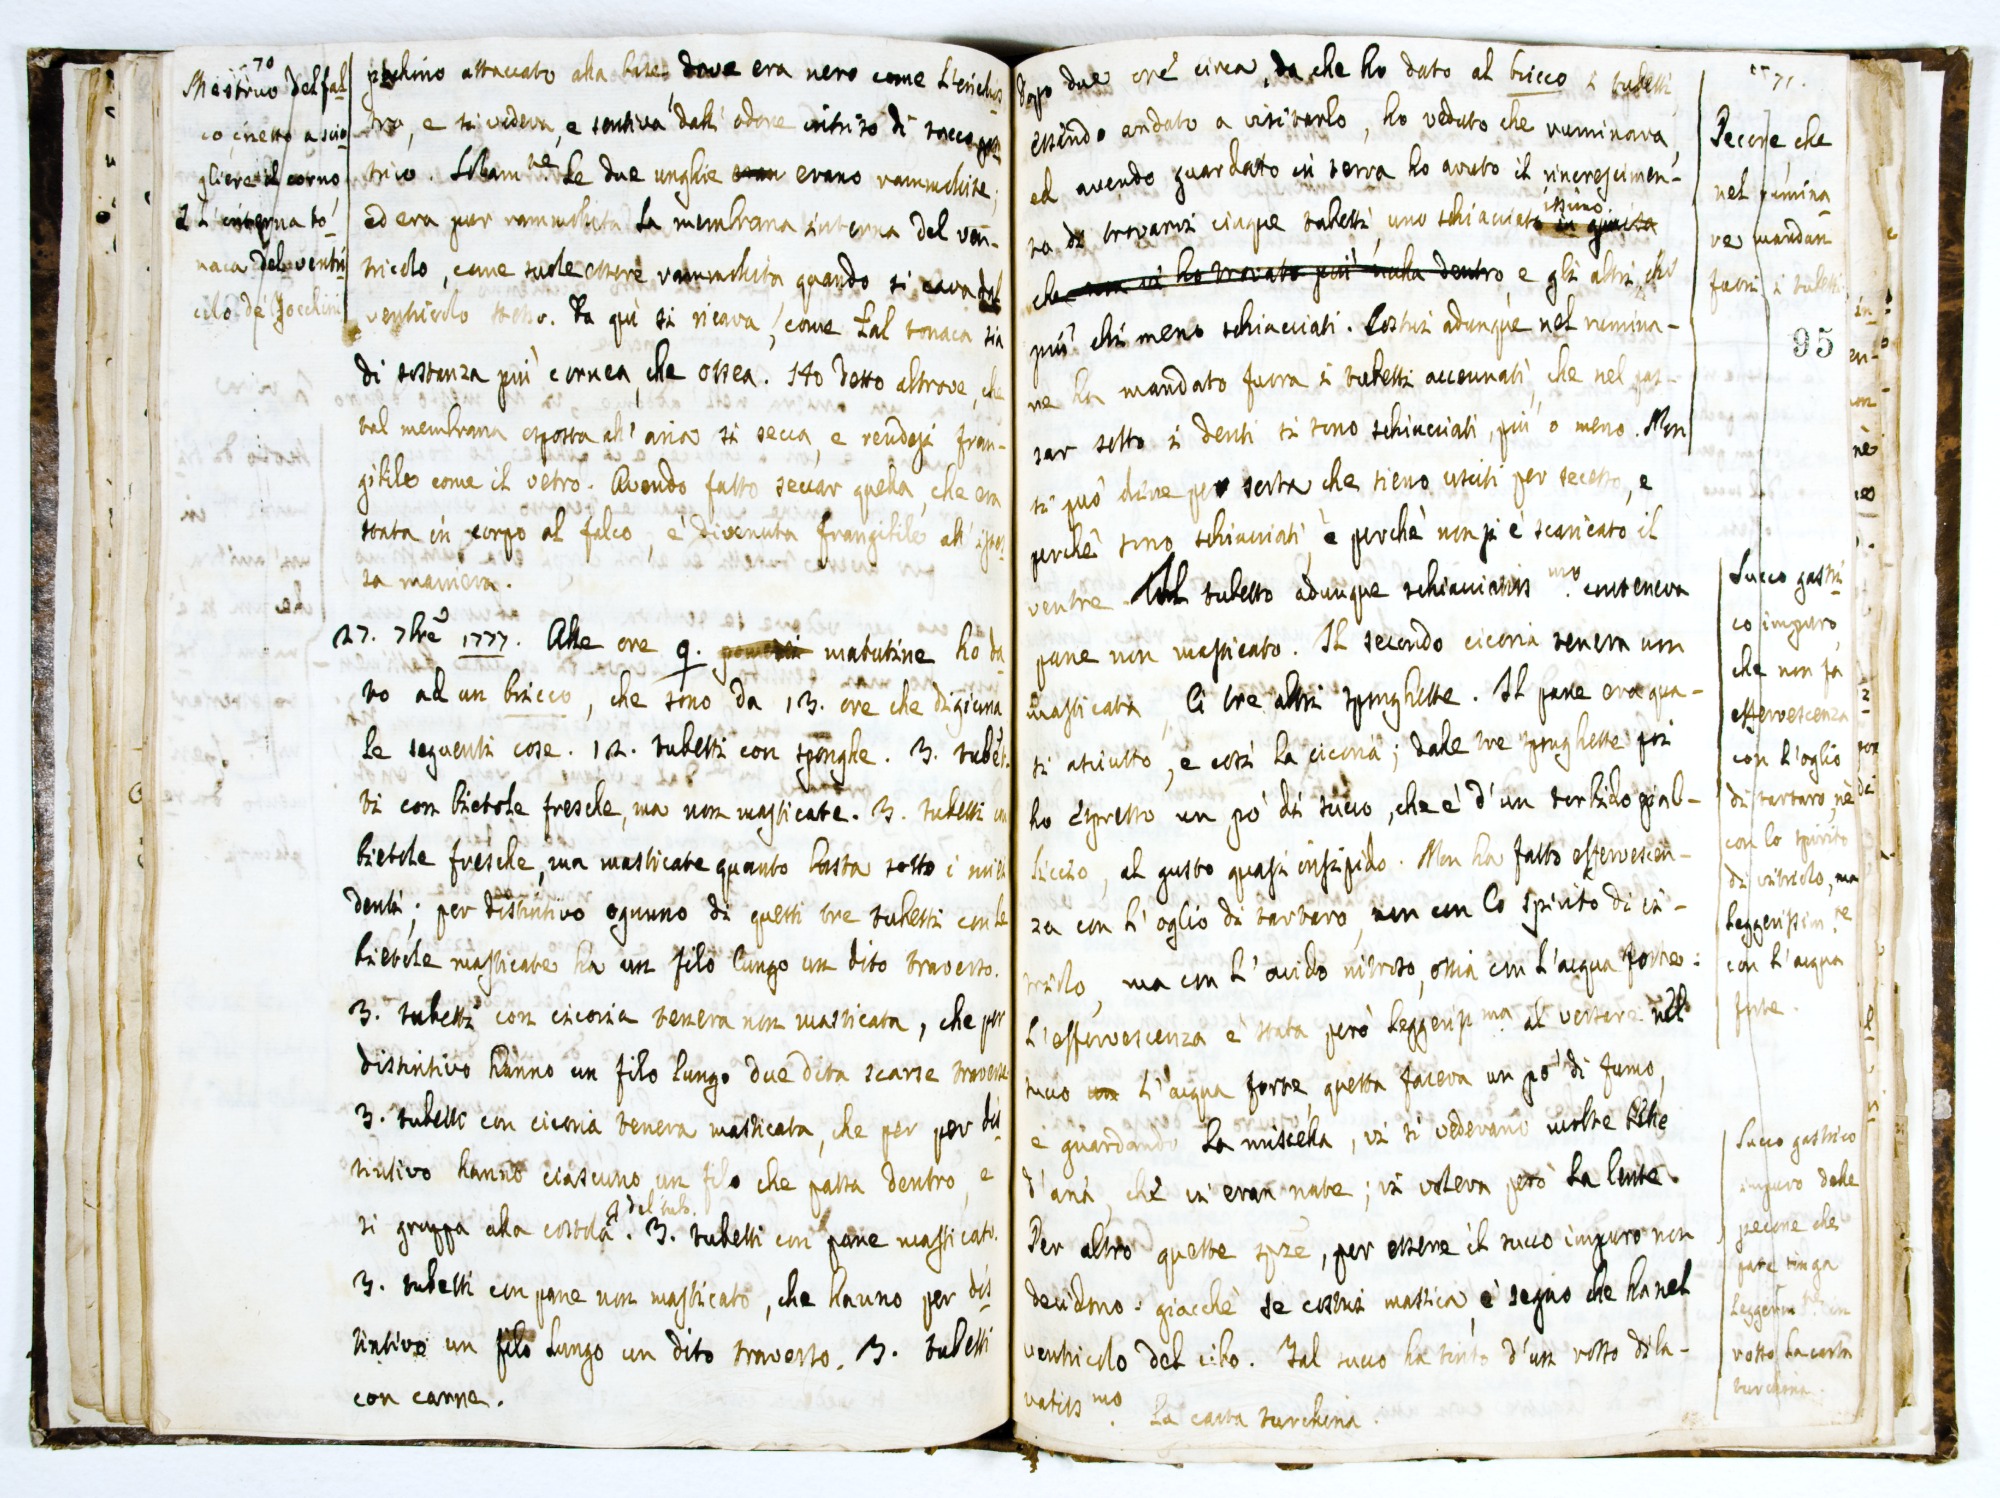 70
Mestruo del fal
co inetto a scio
gliere il corno
e l'interna to
naca del ventri
colo de'
pochino attaccato alla base, dove era nero come l'inchios
tro, e si vedeva, e sentiva dall' odore intriso di succo gas
trico. le due unghie erano rammolite;
ed era pur rammolita la membrana interna del ven-
tricolo, come suole essere rammolita quando si cava dal
ventricolo stesso. Da qui si ricava, come tal tonaca sia
di sostanza più cornea, che ossea. Ho detto altrove, che
tal membrana esposta all' aria si secca, e rendesi fran-
gibile come il vetro. Avendo fatto seccar quella, che era
stata in corpo al falco, è divenuta frangibile all' istes
sa maniera.
27. 7bre 1777. Alle ore 9. matutine ho da
to ad un bricco, che sono da 13. ore che digiuna
le seguenti cose. 12. tubetti con sponghe. 3. tubet
ti con bietole fresche, ma non masticate. 3. tubetti con
bietole fresche, ma masticate quanto basta sotto i miei
denti; per distintivo ognuno di questi tre tubetti con le
bietole masticate ha un filo lungo un dito traverso.
3. tubetti con cicoria tenera non masticata, che per
distintivo hanno un filo lungo due dita scarse traverse
3. tubetti con cicoria tenera masticata, che per per dis
tintivo hanno ciascuno un filo che passa dentro, e
si gruppa alla costola del tub. 3. tubetti con pane masticato.
3. tubetti con pane non masticato, che hanno per dis
tintivo un filo lungo un dito traverso. 3. tubetti
con carne.
71.
Dopo due ore circa, da che ho dato al bricco i tubetti,
essendo andato a visitarlo, ho veduto che ruminava,
ed avendo guardato in terra ho avuto il rincrescimen-
to di trovarvi cinque tubetti, uno schiacciatissimo in guisa
che non vi ho trovato più nulla dentro e gli altri chi
più chi meno schiacciati. Costui adunque nel rumina-
re ha mandato fuora i tubetti accennati, che nel pas-
sar sotto i denti si sono schiacciati, più o meno. Non
si può dire per sorta che sieno usciti per secesso, e
perchè sono schiacciati, e perchè non si è scaricato il
ventre. Il tubetto adunque schiacciatismo. conteneva
pane non masticato. Il secondo cicoria tenera non
masticata, li tre altri spunghette. Il pane era qua-
si asciutto, e così la cicoria; dalle tre spunghette poi
ho espresso un po' di succo, che è d'un torbido gial-
liccio, al gusto quasi insipido. Non ha fatto effervescen-
za con l'oglio di tartaro, non con lo spirito di vi-
triolo, ma con l'acido nitroso, ossia con l'acqua forte:
l'effervescenza è stata però leggerissma al versare nel
succo l'acqua forte, questa faceva un po' di fumo,
e guardando la miscella, vi si vedevano molte bolle
d'aria, che vi eran nate; vi voleva però la lente.
Per altro queste spze, per essere il succo impuro non
decidono: giacchè se costui mastica, è segno che ha nel
ventricolo del cibo. Tal succo ha tinto d'un rosso dila-
vatissmo. la carta turchina.
Pecore, che
nel rumina
re mandan
fuori i tubetti
95
Succo gastri
co impuro,
che non fa
effervescenza
con l'oglio
di tartaro, nè
con lo spirito
di vitriolo, ma
leggerissimte
con l'acqua
forte.
Succo gastrico
impuro delle
pecore che
pare tinga
in
rosso la carta
turchina.